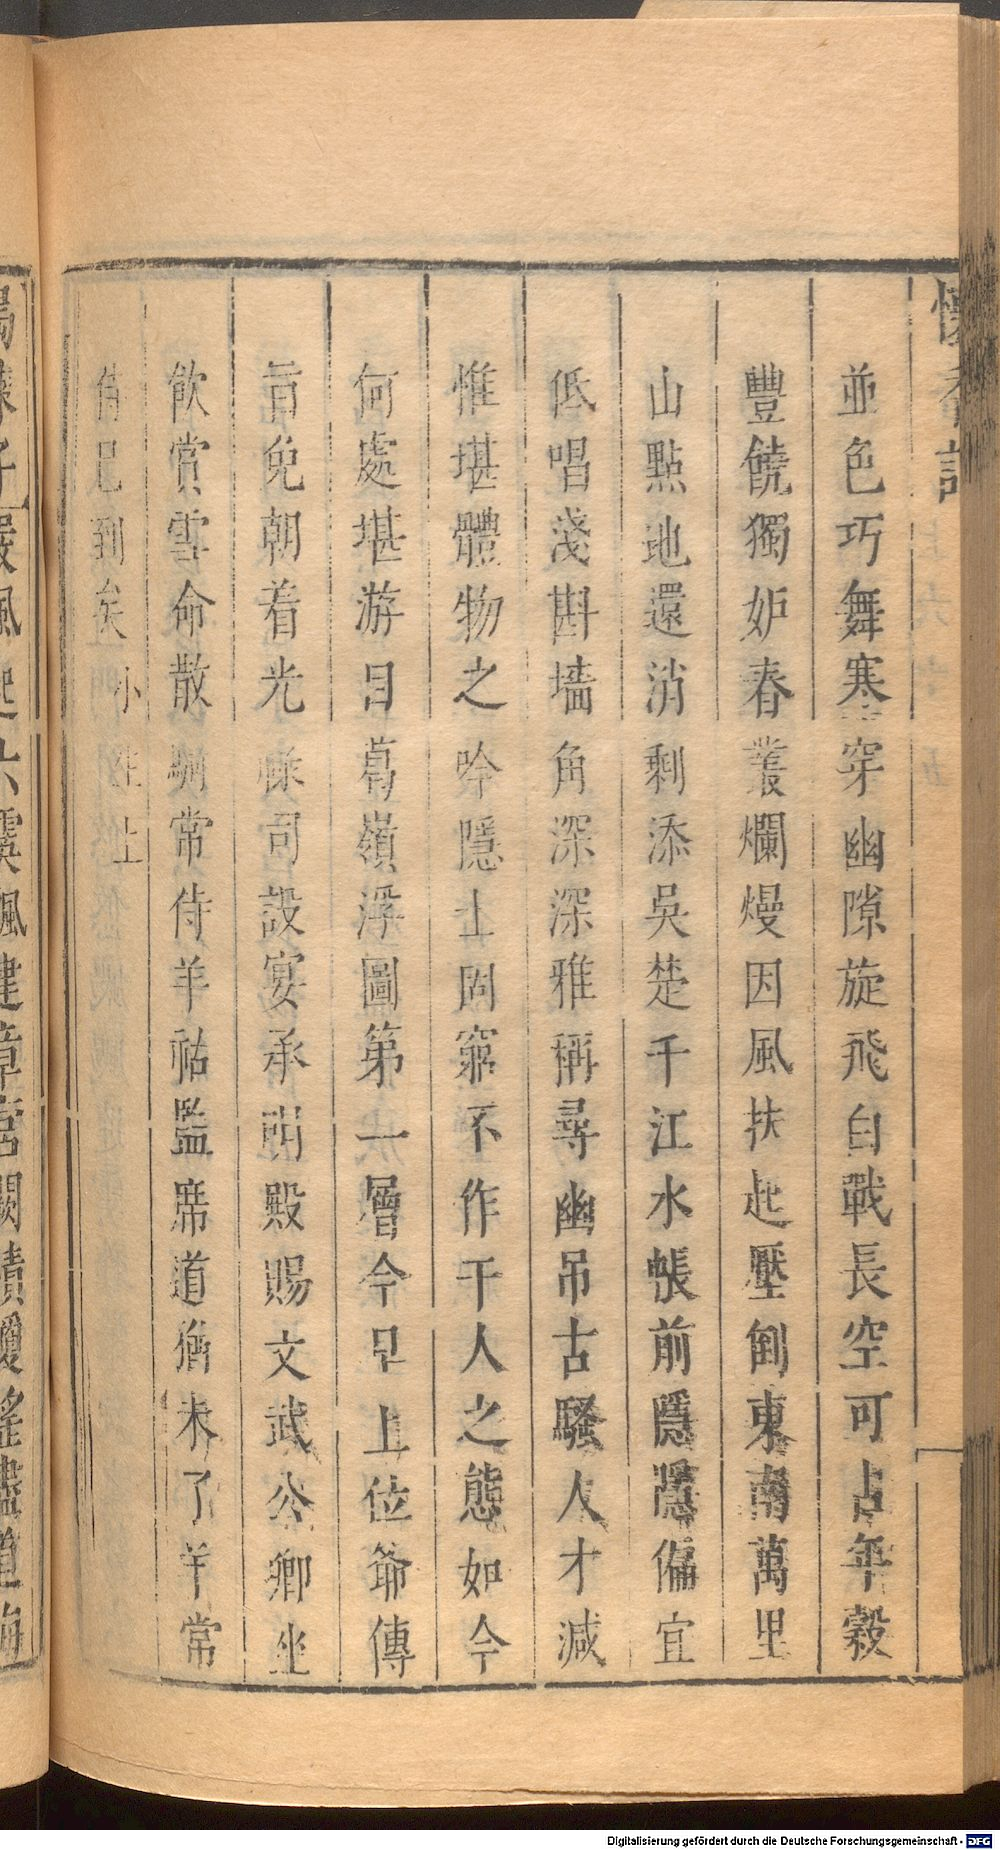 並色巧舞寒穿幽隙旋飛自戰長空可占年穀
豐饒獨妒春叢爛熳因風扶起壓倒東南萬里
山點地還消剩添吳楚千江水帳前隱隱偏宜
低唱淺斟墻角深深雅稱尋幽吊古騷人才減
惟堪體物之吟隱士固窮不作干人之態如今
何處堪游目葛嶺浮圖第一層今早上位爺傳
旨免朝着光祿司設宴承明殿賜文武公卿坐
飲賞雪命散騎常侍羊祜監席道猶未了羊常
侍已到矣
小生上
Digitalisierung gefördert durch die Deutsche Forschungsgemeinschaft - DFG